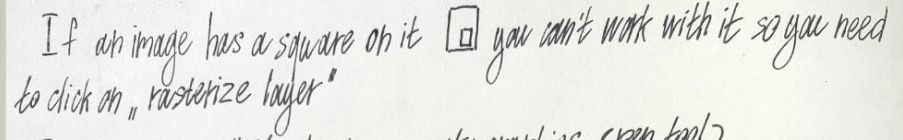 If an image has a square on it you can't work with it so you need
to click on „rasterize layer"
(pen tool)